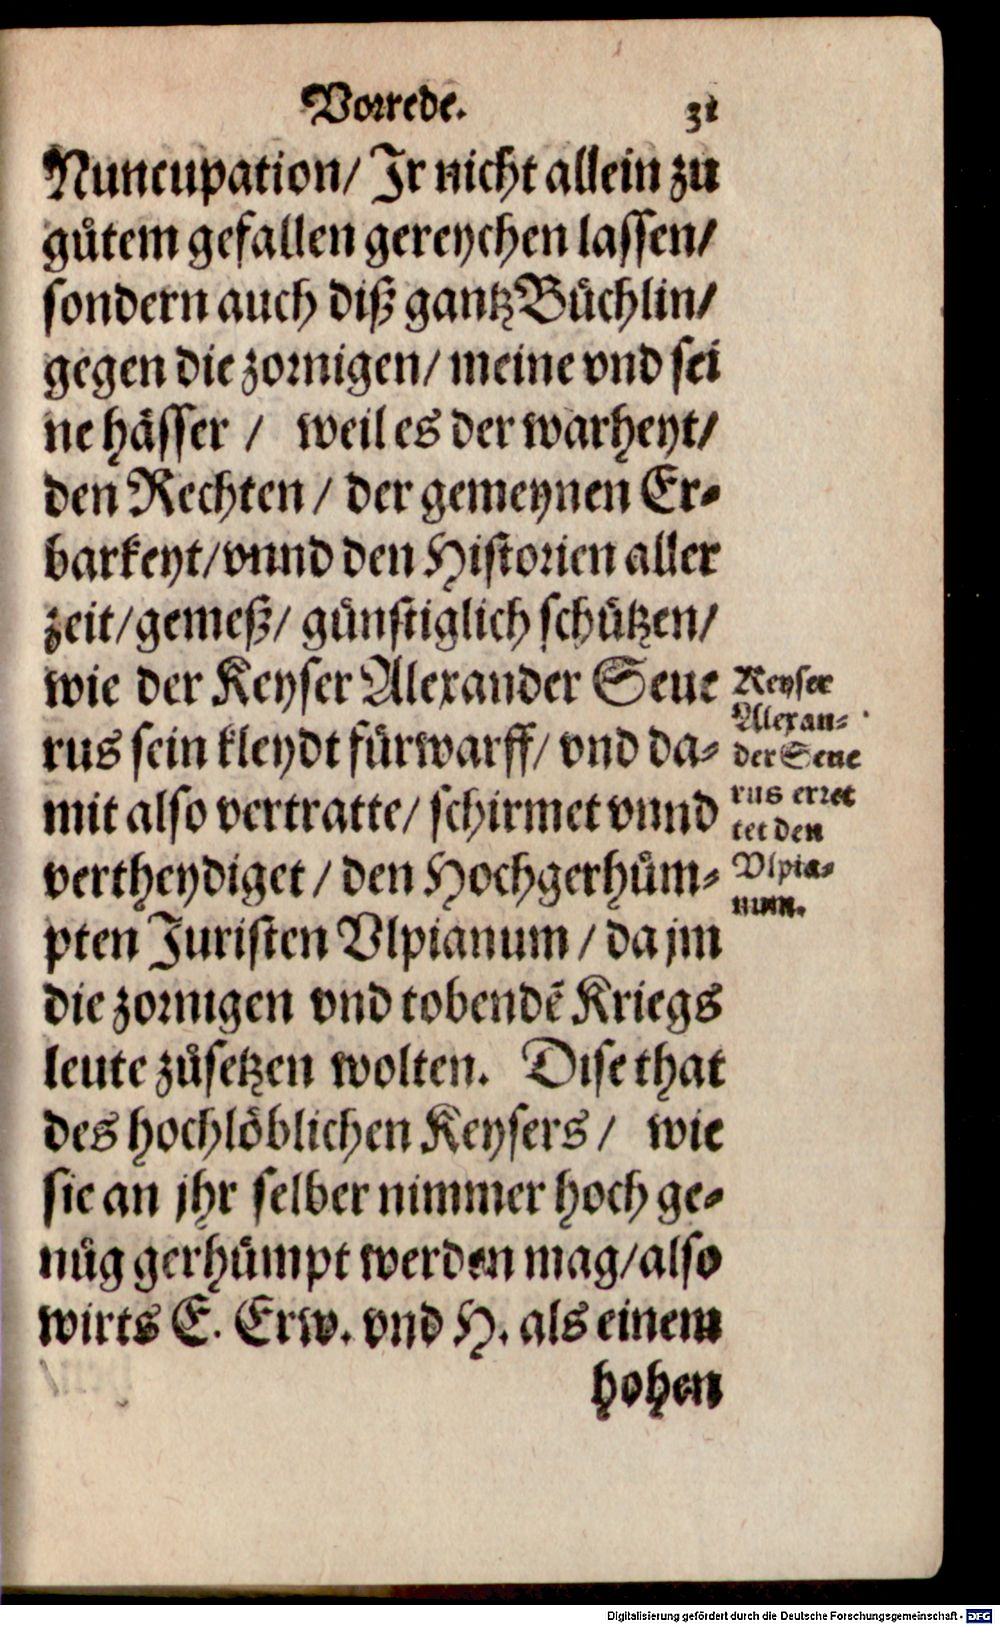 Vorrede. 31
Nuncupation/ Jr nicht allein zu
gůtem gefallen gereychen lassen/
sondern auch diß gantz Bůchlin/
gegen die zornigen/ meine vnd sei
ne hässer / weil es der warheyt/
den Rechten / der gemeynen Er⸗
barkeyt/ vnnd den Historien aller
zeit/ gemeß/ günstiglich schützen/
wie der Keyser Alexander Seue
rus sein kleydt fürwarff/ vnd da⸗
mit also vertratte/ schirmet vnnd
vertheydiget / den Hochgerhům⸗
pten Juristen Vlpianum / da jm
die zornigen vnd tobendē Kriegs
leute zůsetzen wolten. Dise that
des hochlöblichen Keysers / wie
sie an jhr selber nimmer hoch ge⸗
nůg gerhůmpt werden mag/ also
wirts E. Erw. vnd H. als einem
hohen
Keyser
Alexan⸗
der Seue
rus erret
tet den
Vlpia⸗
num.
Digitalisierung gefördert durch die Deutsche Forschungsgemeinschaft - DFG